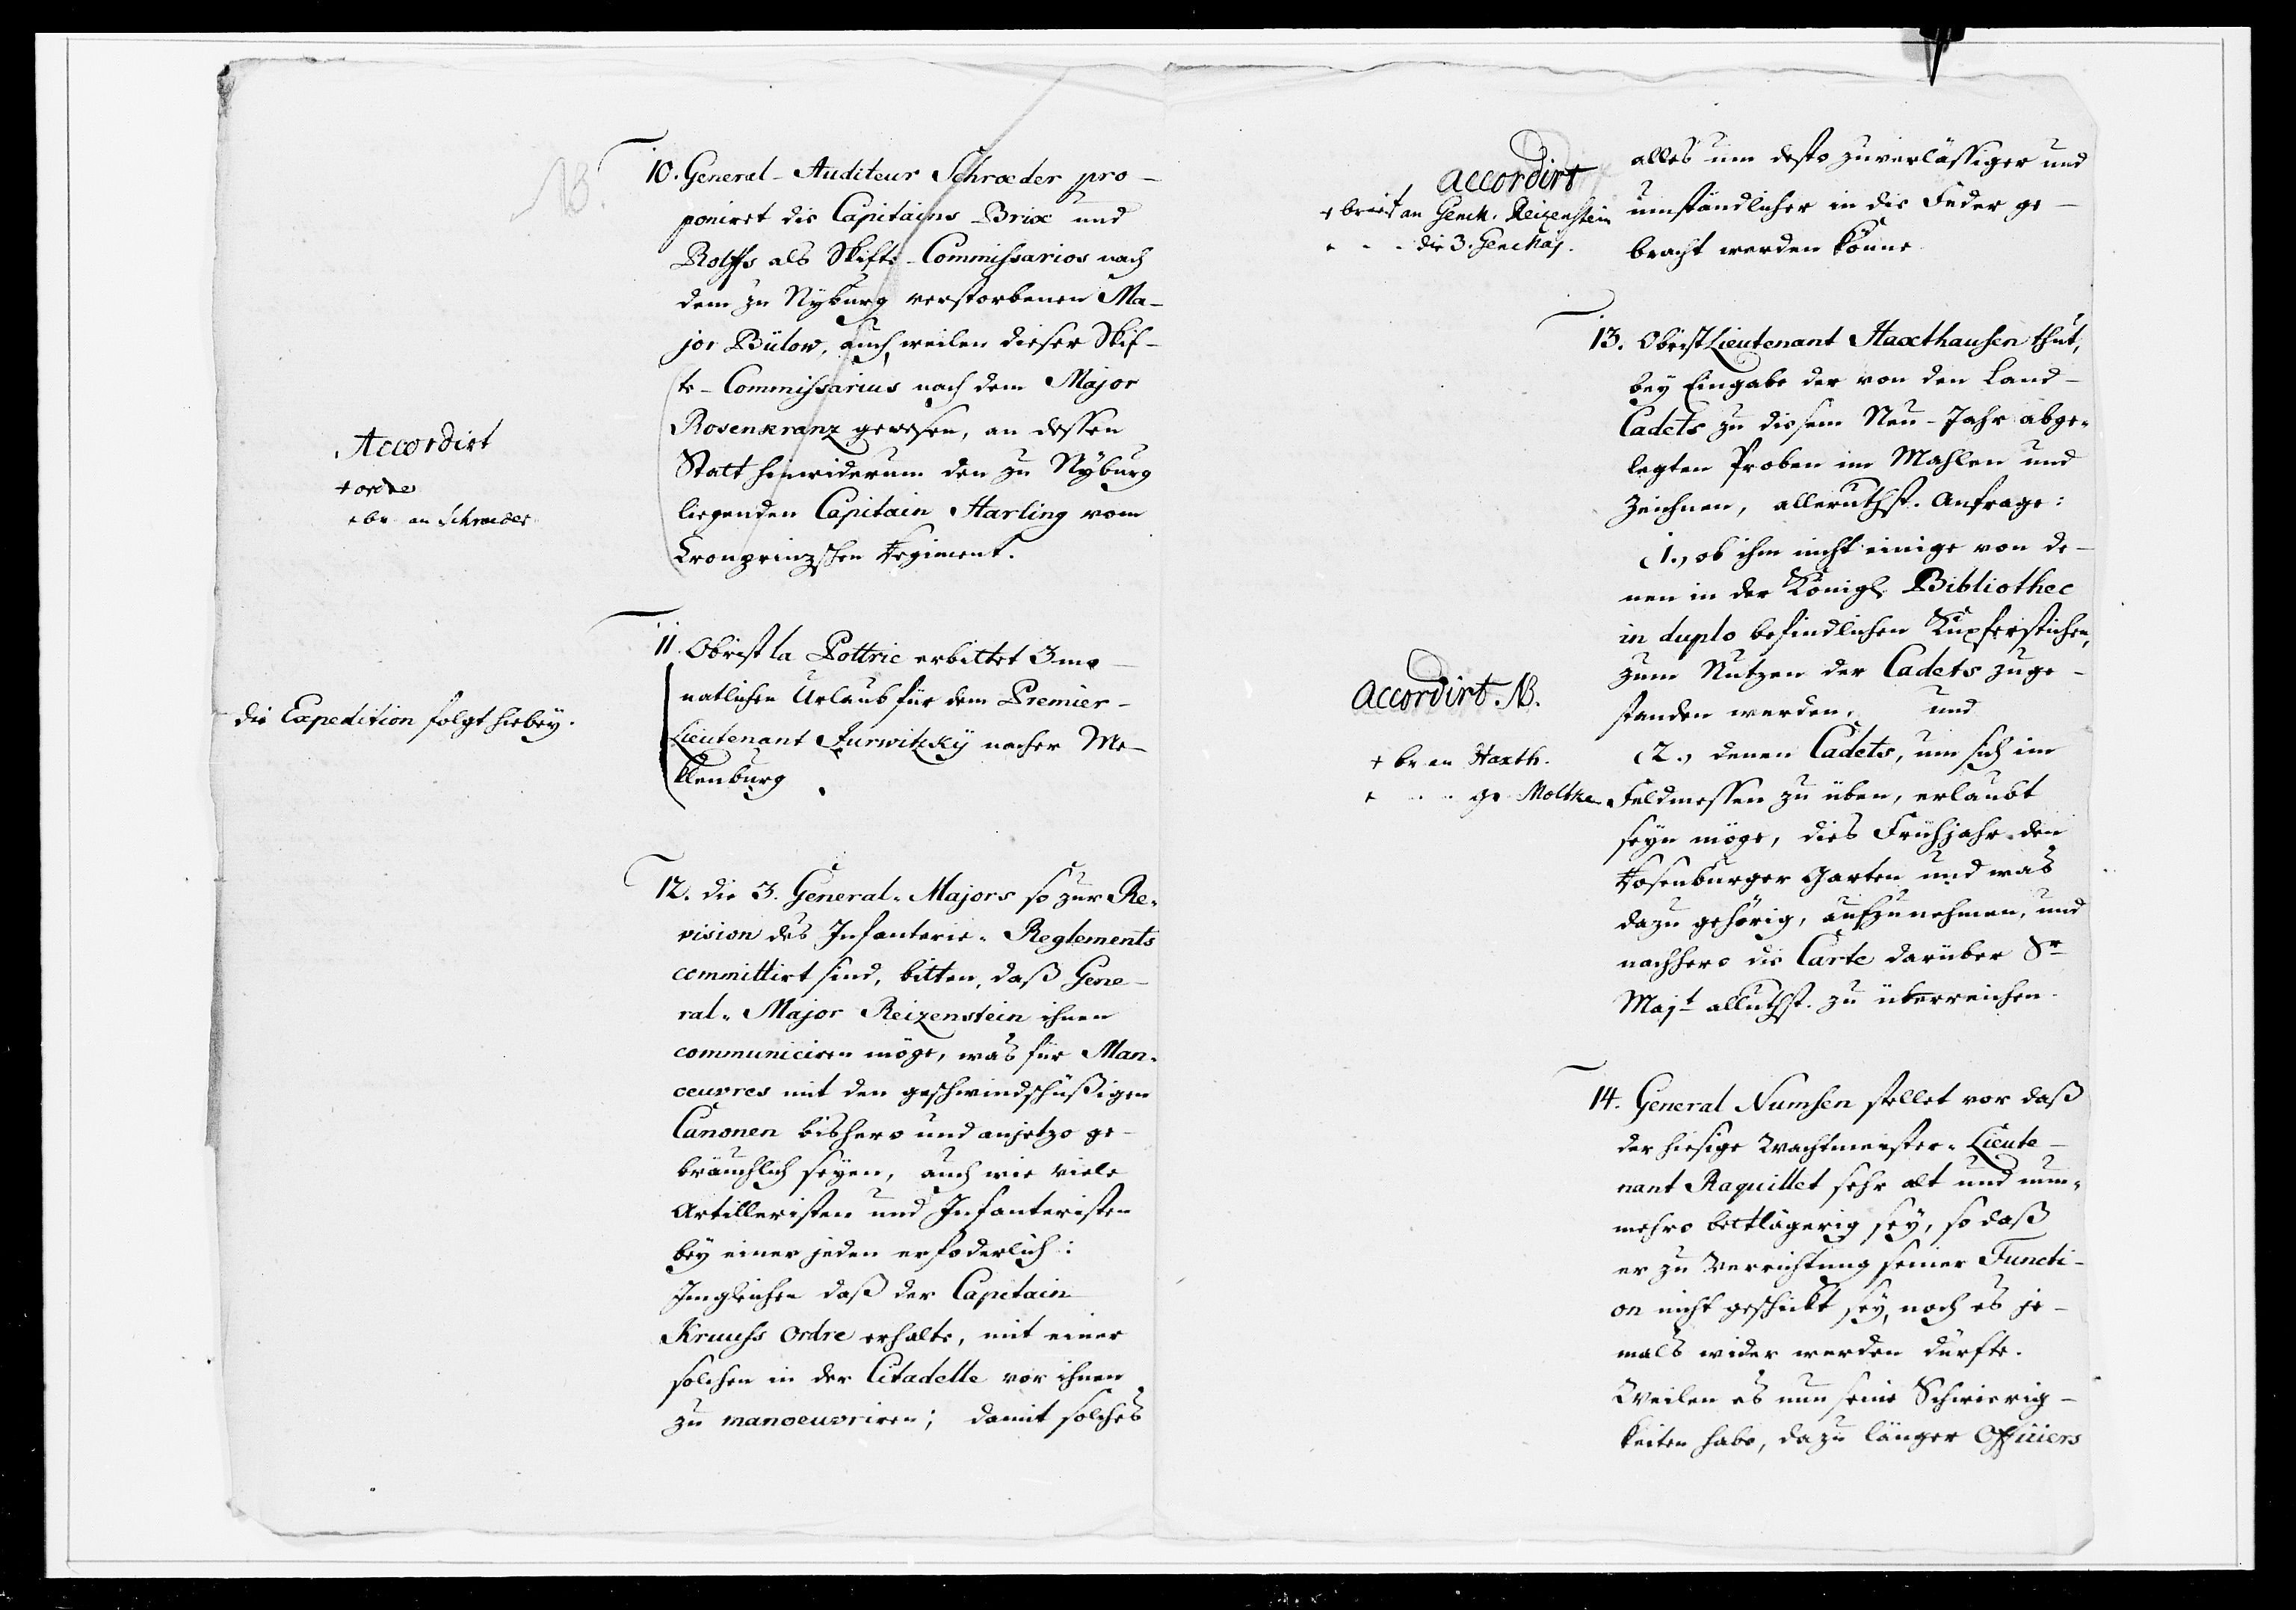 NB.
10. General-Auditeur Schroeder pro-
poniret die Capitains Brixe und
Rolffs als Skifte-Commissarios nach
dem zu Nyburg verstorbenen Ma-
jor Bülow, auch weilen dieser Skif-
te-Commissarius nach dem Major
Rosenkranz gewesen, an dessen
Statt hinwiderum den zu Nyburg
liegenden Capitain Harling vom
Cronprinzschen Regiment.
Accordirt
+ ordre
+ br an Schroeder
11. Obrist la Pottrie erbittet 3 mo-
natlichen Urlaub für dem Premier-
Lieutenant Zurwitzky nacher Me-
klenburg.
die Expedition folgt hiebey.
12. die 3. General-Majors so zur Re-
vision des Infanterie-Reglements
committirt sind, bitten, daß Gene-
ral-Major Reizenstein ihnen
communiciren möge, was für Man-
oeuvres mit den geschwindschüßigen
Canonen bishero und anjetzo ge-
bräuchlich seyen, auch wie viele
Artilleristen und Infanteristen
bey einer jeden erfoderlich:
Imgleichen daß der Capitain
Kruuss Ordre erhalte, mit einer
solchen in der Citadelle vor ihnen
zu manoeuvriren; damit solches
alles um desto zuverlässiger und
umständlicher in die Feder ge-
bracht werden könne
Accordirt
+ br an GenM. Reizenstein
+ - - die 3. GenMaj.
13. ObristLieutenant Haxthausen thut,
bey Eingabe der von den Land-
Cadets zu diesem Neu-Jahr abge-
legten Proben im Mahlen und
Zeichnen, allerunthst. Anfrage:
(1., ob ihm nicht einige von de-
nen in der Königl. Bibliothec
in duplo befindlichen Kupferstichen,
zum Nutzen der Cadets zuge-
standen werden, und
(2., denen Cadets, um sich im
Feldmessen zu üben, erlaubt
seyn möge, dies Frühjahr den
Rosenburger Garten und was
dazu gehörig, aufzunehmen, und
nachhero die Carte darüber Sr
Majt allunthst. zu überreichen.
Accordirt. NB.
+ br an Haxth.
+ - - gr Moltke
14. General Numsen stellet vor daß
der hiesige Wachtmeister-Lieute-
nant Raquillet sehr alt und nun-
mehro bettlägerig sey, so daß
er zu Verrichtung seiner Functi-
on nicht geschickt sey, noch es je-
mals wider werden dürfte.
Weilen es nun seine Schwierig-
keiten habe, dazu länger Officiers